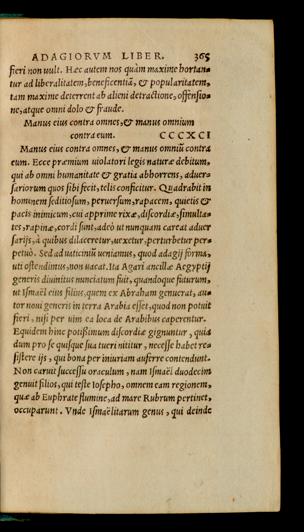 ADAGIORVM LIBER. 365
fieri non uult. Hæc autem nos quàm maxime hortan-
tur ad liberalitatem, beneficentiã, & popularitatem,
tam maxime deterrent ab alieni detractione, offensio-
ne, atque omni dolo & fraude.
Manus eius contra omnes, & manus omnium
contra eum. CCCXCI
Manus eius contra omnes, & manus omniũ contra
eum. Ecce præmium uiolatori legis naturæ debitum,
qui ab omni humanitate & gratia abhorrens, aduer-
sariorum quos sibi fecit, telis conficitur. Quadrabit in
hominem seditiosum, peruersum, rapacem, quietis &
pacis inimicum, cui apprime rixæ, discordiæ, simulta-
tes, rapinæ, cordi sunt, adeò ut nunquam careat aduer-
sarijs, à quibus dilaceretur, uexetur, perturbetur per-
petuò. Sed ad uaticiniũ ueniamus, quod adagij forma,
uti ostendimus, non uacat. Ita Agari ancillæ Aegyptij
generis diuinitus nunciatum fuit, quandoque futurum,
ut Ismaël eius filius, quem ex Abraham genuerat, au-
tor noui generis in terra Arabia esset, quod non potuit
fieri, nisi per uim ea loca de Arabibus caperentur.
Equidem hinc potissimum discordiæ gignuntur, quia
dum pro se quisque sua tueri nititur, necesse habet re-
sistere ijs, qui bona per iniuriam auferre contendunt.
Non caruit successu oraculum, nam Ismaël duodecim
genuit filios, qui teste Iosepho, omnem eam regionem,
quæ ab Euphrate flumine, ad mare Rubrum pertinet,
occuparunt. Vnde Ismaëlitarum genus, qui deinde